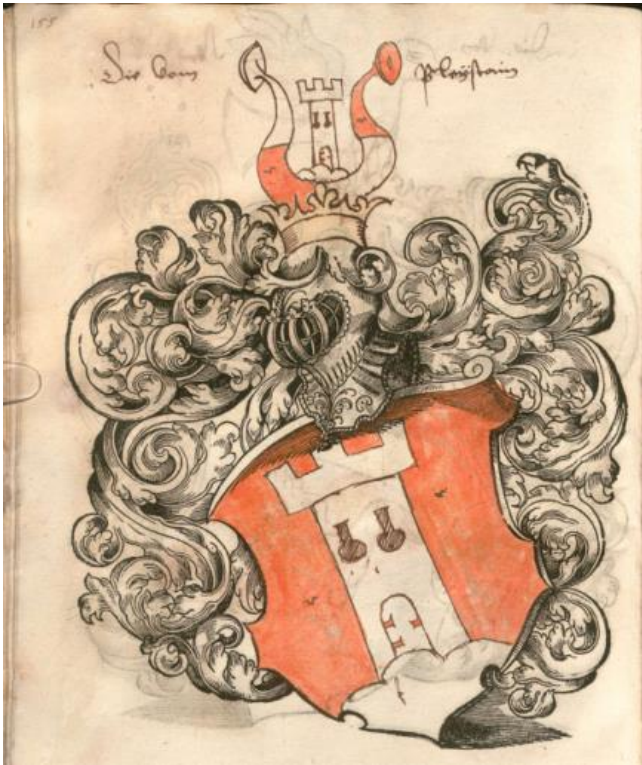 155
Die vom Pleystain